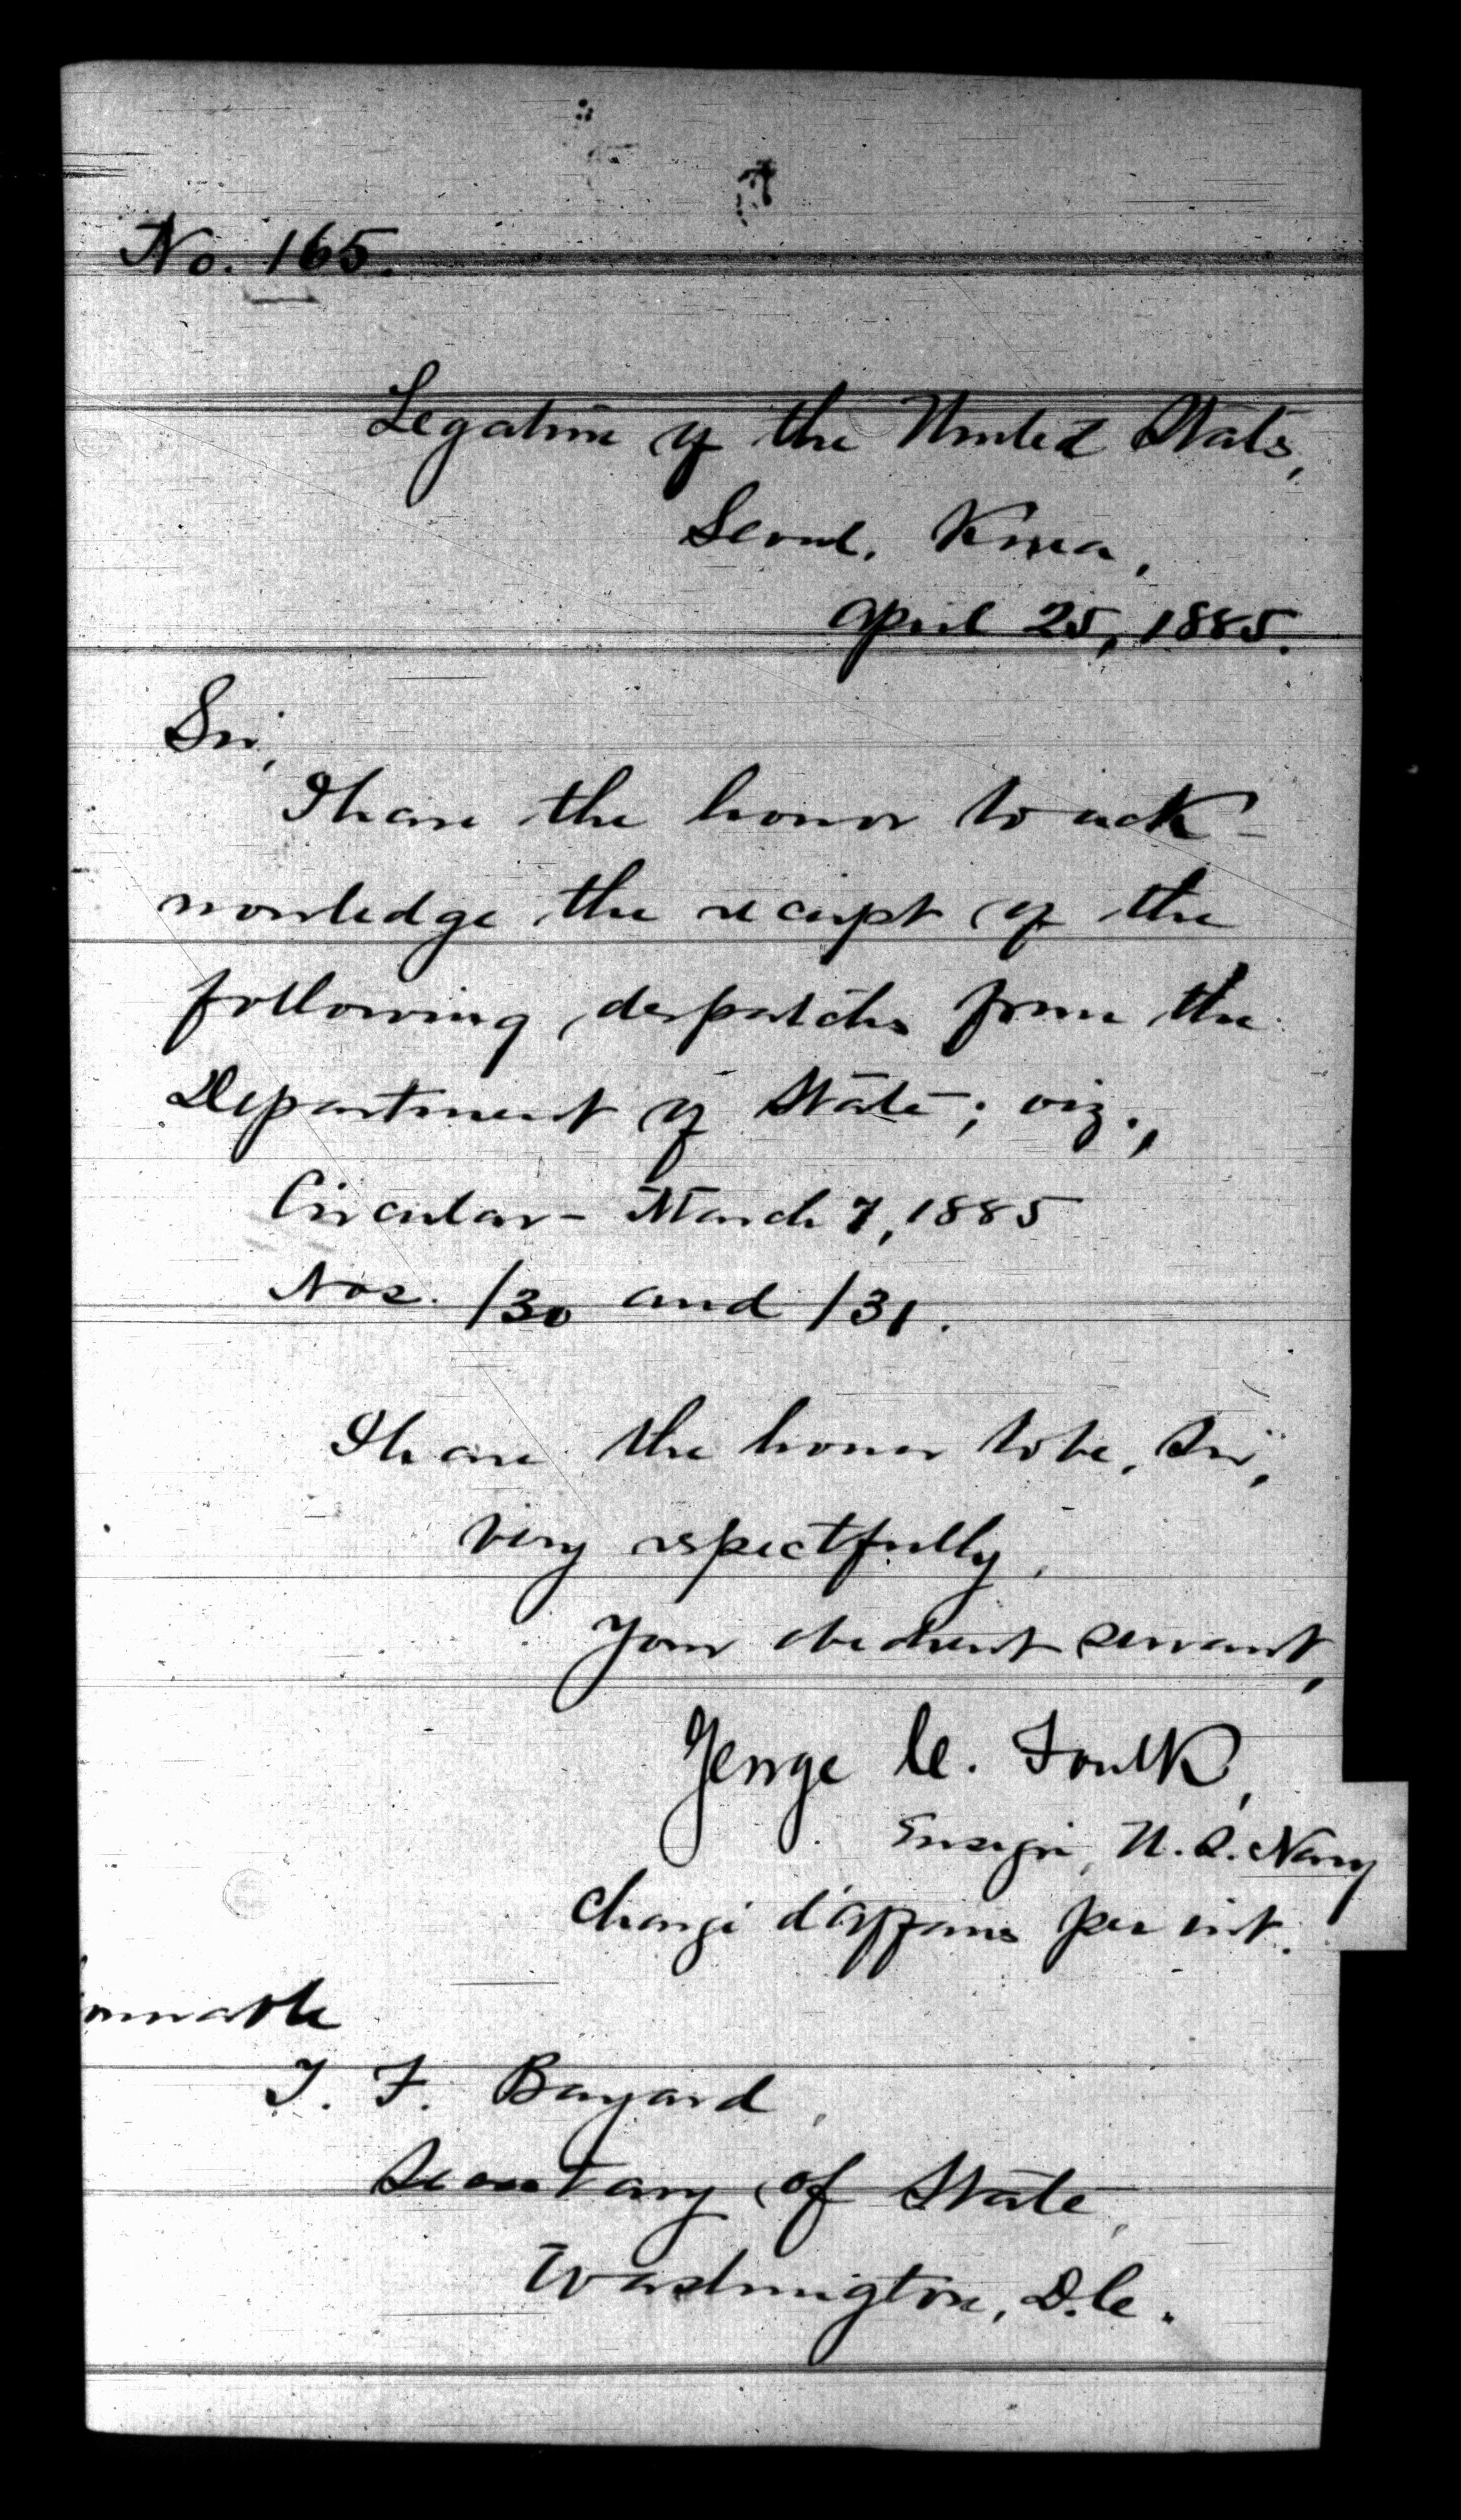 No. 165.
Legation of the United States,
Seoul, Korea,
April 25, 1885.
Sir,
I have the honor to ack-
nowledge the receipt of the
following despatches from the
Department of State; viz.,
Circular - March 7, 1885
Nos. 130 and 131.
I have the honor to be, Sir,
very respectfully,
Your obedient servant,
George C. Foulk,
Ensign, U.S. Navy
Chargé d'affaires per int.
onorable
T. F. Bayard,
Secretary of State,
Washington, D.C.